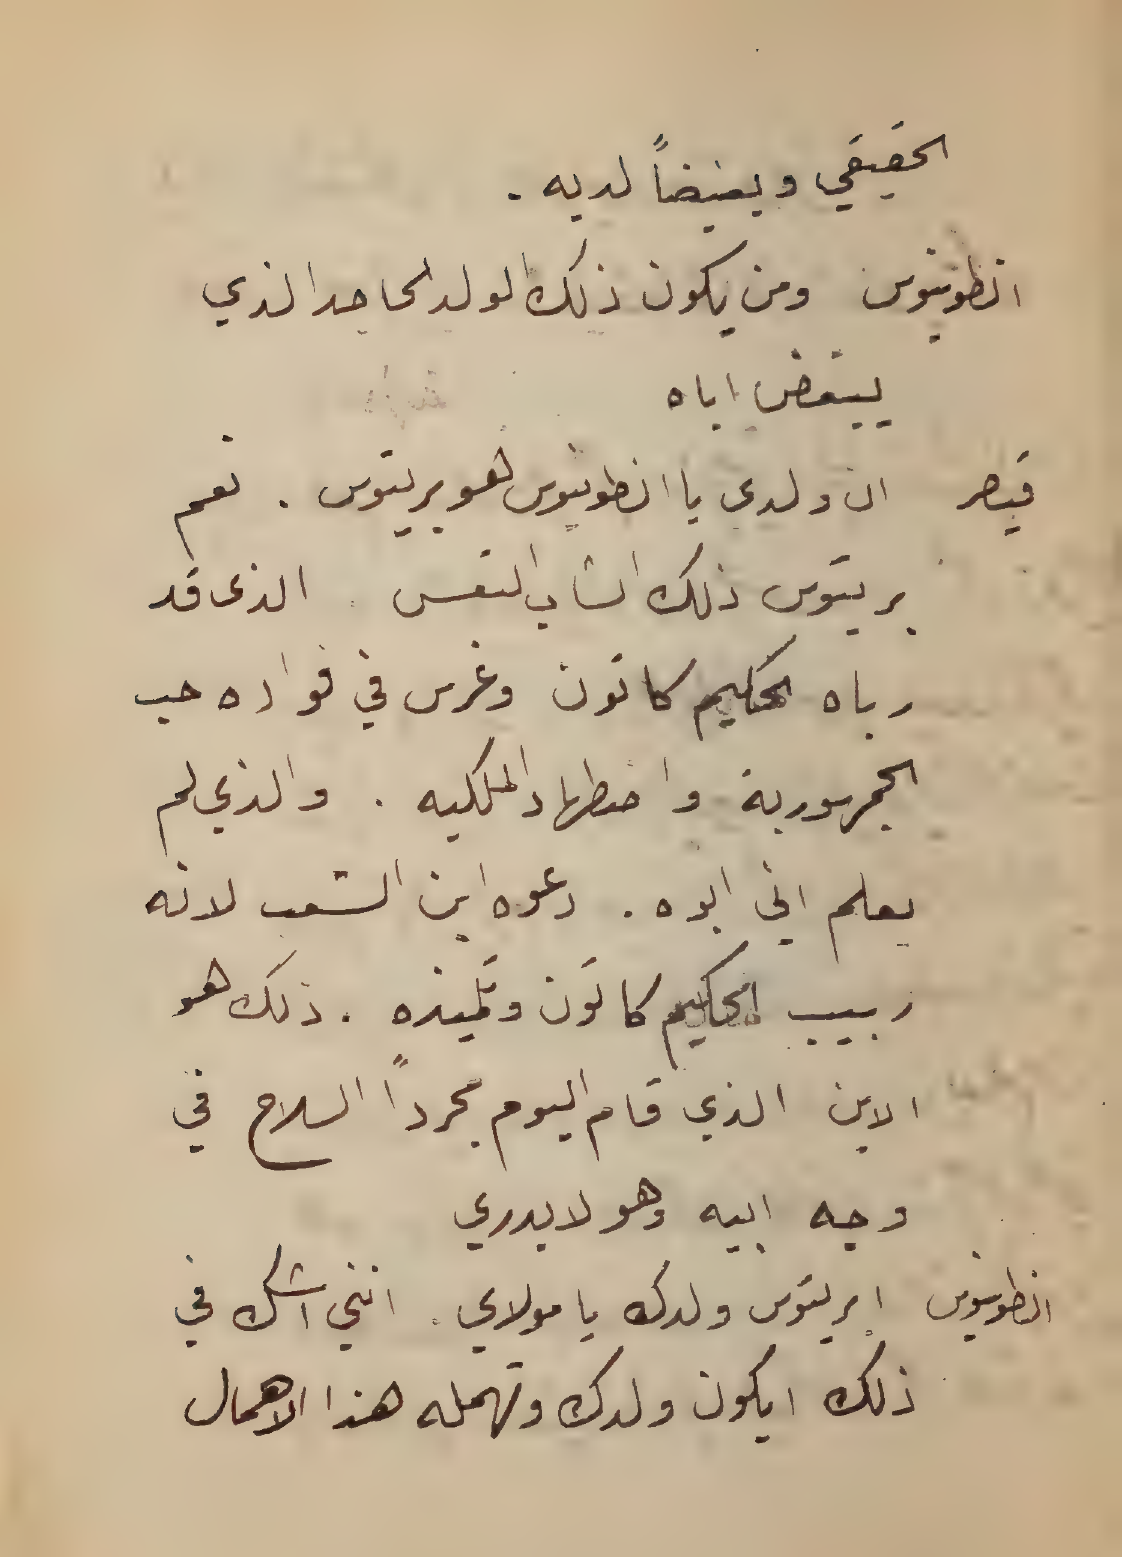 الحقيقي وبغيضاً لديه .
انطونيوس ومن يكون ذلك الولد الجاحد الذي
يبغض اباه
قيصر ان ولدى يا انطونيوس هو بريتوس . نعم
بريتوس ذلك الشاب التعس . الذى قد
رباه الحكيم كاتون وغرس في فواده حب
الجمهورية واضطهاد الملكيه . والذي لم
يعلم اني ابوه . دعوه ابن الشعب لانه
ربيب الحكيم كاتون وتلميذه . ذلك هو
الابن الذي قام اليوم مجرداً السلاح في
وجه ابيه وهو لا يدري
انطونيوس ابريتوس ولدك يا مولاي . انني اشك في
ذلك ايكون ولدك وتهمله هذا الاهمال